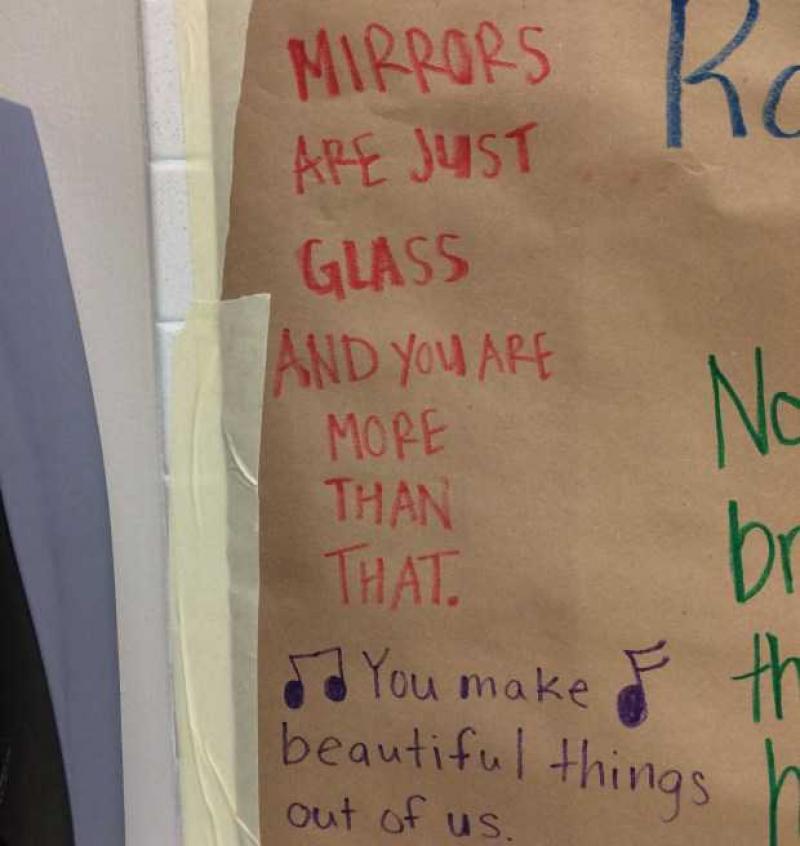 MIRRORS
ARE JUST
GLASS
AND YOU ARE
MORE
THAN
THAT.
You make
beautiful things
out of us.